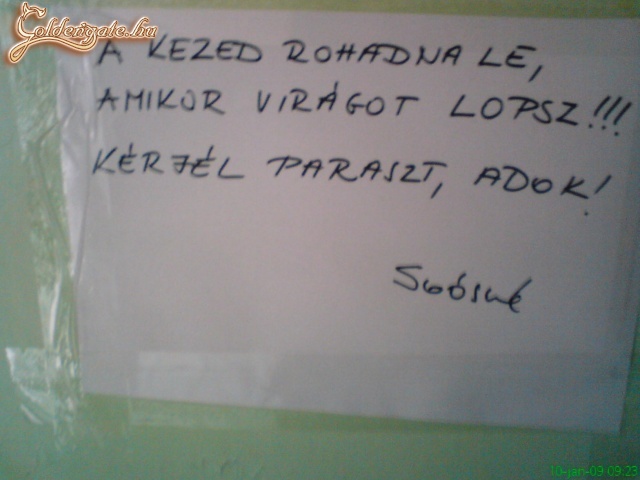 Goldengate.hu
A KEZED ROHADNA LE,
AMIKOR VIRÁGOT LOPSZ!!!
KÉRJÉL PARASZT, ADOK!
10-jan-09 09:23